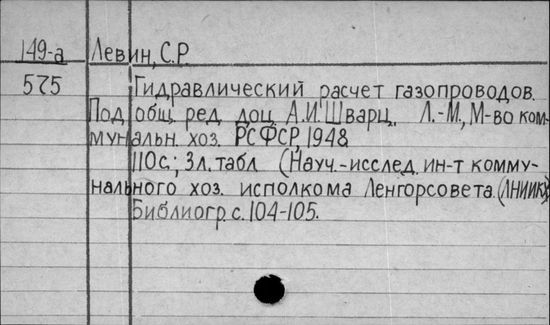 149-а Левин, С.Р
575 Гидравлический расчет газопроводов.
Под общ. ред. доц. А.И.Шварц. Л.-М., М-во ком-
мунальн. хоз. РСФСР, 1948
110с.; 3л.табл (Науч.-исслед. ин-т комму-
нального хоз. исполкома Ленгорсовета.(ЛНИИКХ)
Библиогр. с. 104-105.